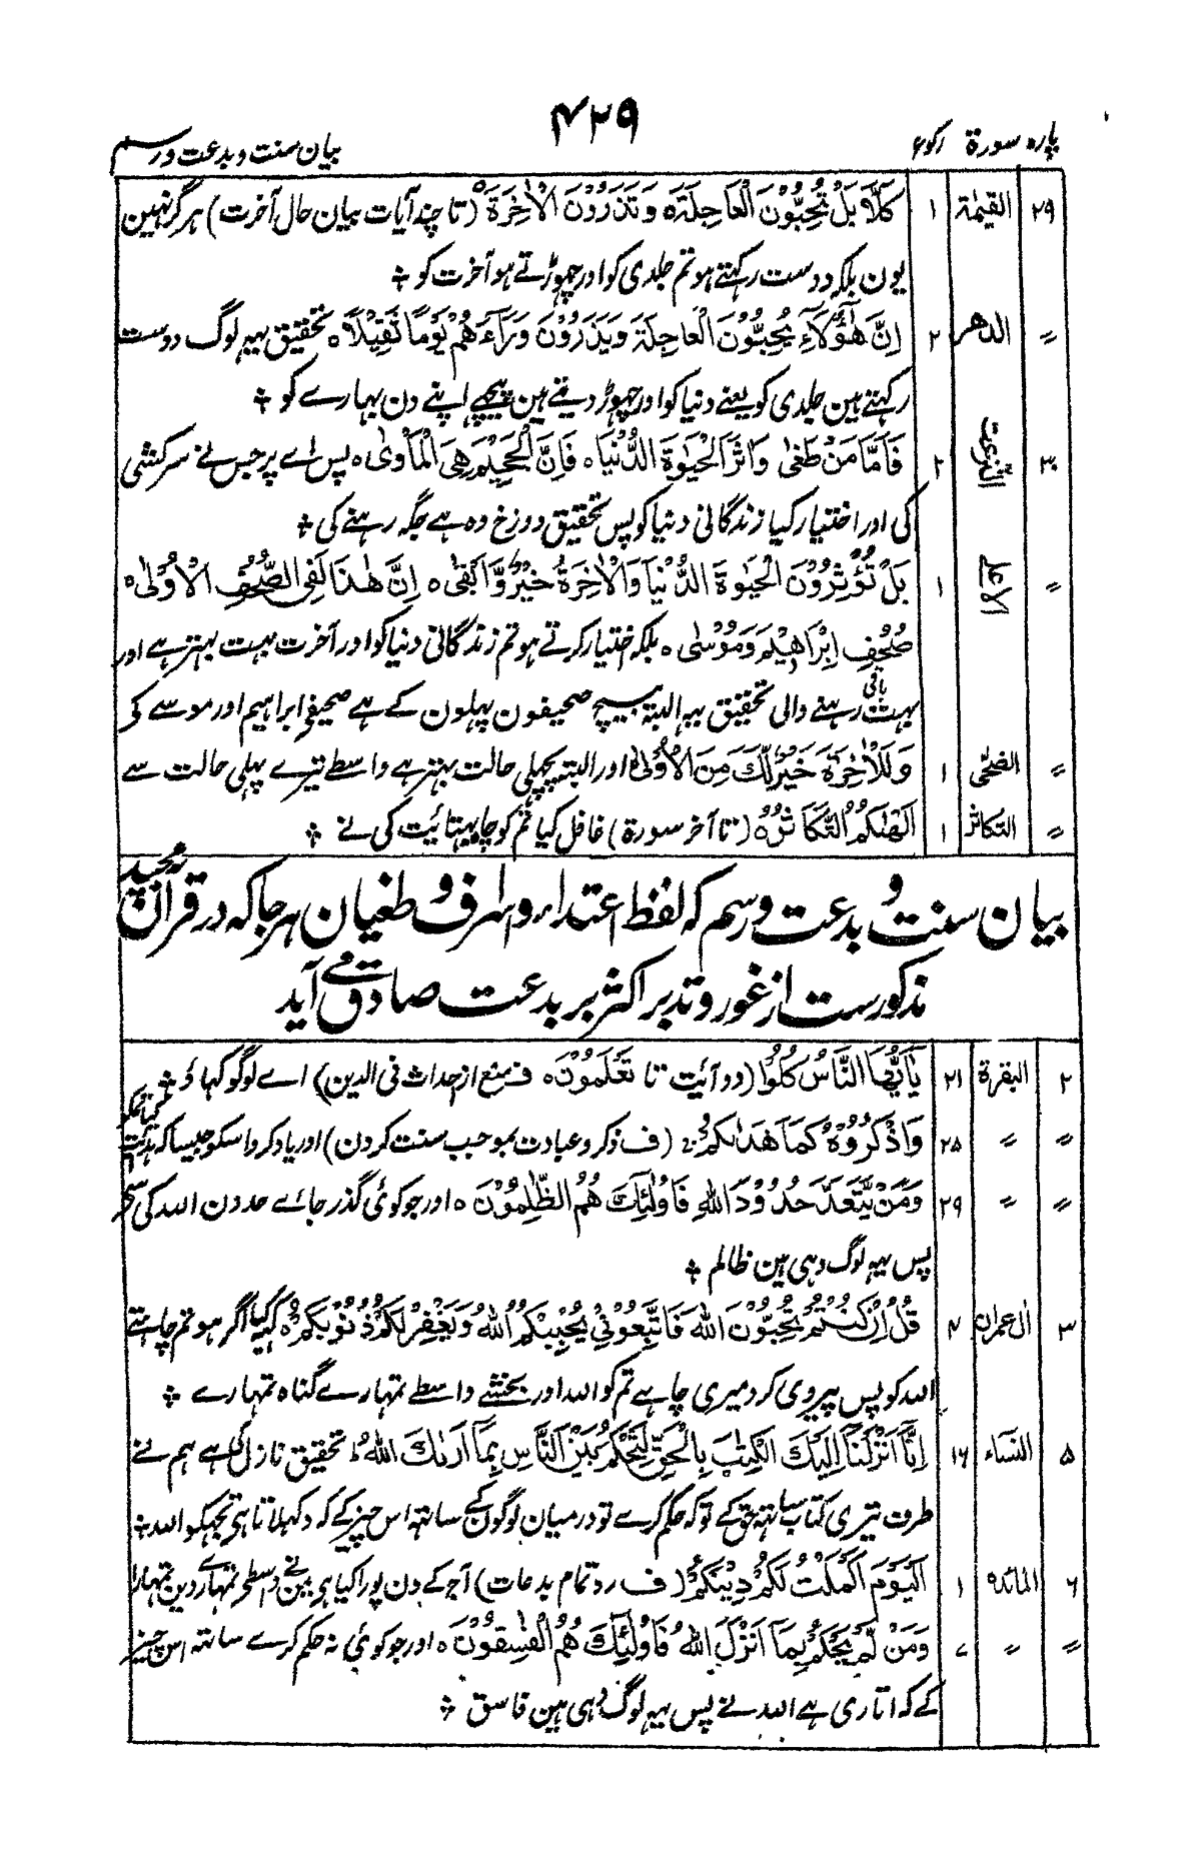 ۴۲۹
پارہ سورۃ رکوع
بیان سنت و بدعت و رسم
۲۹ القیمۃ ۱ كَلَّا بَلْ تُحِبُّوْنَ الْعَاجِلَةَ ہ وَتَذَرُوْنَ الْاٰخِرَةَ ہ (تا چند آیات بیان حال آخرت) ہرگز نہین
یون بلکہ دوست رکہتے ہو تم جلدی کو اور چہوڑتے ہو آخرت کو ؞
〃 الدھر ۲ اِنَّ هٰٓؤُلَآءِ يُحِبُّوْنَ الْعَاجِلَةَ وَيَذَرُوْنَ وَرَآءَهُمْ يَوْمًا ثَقِيْلًا ہ تحقیق یہہ لوگ دوست
رکہتے ہین جلدی کو یعنے دنیا کو اور چہوڑ دیتے ہین پیچہے اپنے دن بہارے کو ؞
۳۰ النّٰزعٰت ۲ فَاَمَّا مَنْ طَغٰى وَاٰثَرَ الْحَيٰوةَ الدُّنْيَا ہ فَاِنَّ الْجَحِيْمَ هِيَ الْمَاْوٰى ہ پس اے پر جس نے سرکشی
کی اور اختیار کیا زندگانی دنیا کو پس تحقیق دوزخ وہ ہے جگہ رہنے کی ؞
〃 الاعلے ۱ بَلْ تُؤْثِرُوْنَ الْحَيٰوةَ الدُّنْيَا وَالْاٰخِرَةُ خَيْرٌ وَّاَبْقٰى ہ اِنَّ هٰذَا لَفِي الصُّحُفِ الْاُوْلٰى ہ
صُحُفِ اِبْرَاهِيْمَ وَمُوْسٰى ہ بلکہ اختیار کرتے ہو تم زندگانی دنیا کو اور آخرت بہت بہتر ہے اور
بہت باقی رہنے والی تحقیق یہہ البتہ بیچ صحیفون پہلون کے ہے صحیفے ابراہیم اور موسے کے
〃 الضحٰی ۱ وَلَلْاٰخِرَةُ خَيْرٌ لَّكَ مِنَ الْاُوْلٰى ہ اور البتہ پچہلی حالت بہتر ہے واسطے تیرے پہلی حالت سے
〃 التکاثر ۱ اَلْهٰىكُمُ التَّكَاثُرُ ہ (تا آخر سورۃ) غافل کیا تم کو چاہتائیت کی نے ؞
بیان سنت و بدعت و رسم کہ لفظ اعتداء و اسراف و طغیان ہر جا کہ در قرآن مجید
مذکورست از غور و تدبر اکثر بر بدعت صادق مے آید
۲ البقرۃ ۲۱ يٰٓاَيُّهَا النَّاسُ كُلُوْا (دو آیت تا تَعْلَمُوْنَ ہ ف منع از احداث فی الدین) اے لوگو کہاؤ ؞
〃 〃 ۲۵ وَاذْكُرُوْهُ كَمَا هَدٰىكُمْ ج (ف ذکر و عبادت بموجب سنت کردن) اور یاد کرو اسکو جیسا کہ ہدایت
〃 〃 ۲۹ وَمَنْ يَّتَعَدَّ حُدُوْدَ اللّٰهِ فَاُولٰٓئِكَ هُمُ الظّٰلِمُوْنَ ہ اور جو کوئی گذر جائے حدون اللہ کی سے
پس یہہ لوگ وہی ہین ظالم ؞
۳ اٰل عمران ۴ قُلْ اِنْ كُنْتُمْ تُحِبُّوْنَ اللّٰهَ فَاتَّبِعُوْنِيْ يُحْبِبْكُمُ اللّٰهُ وَيَغْفِرْ لَكُمْ ذُنُوْبَكُمْ ہ کہہ اگر ہو تم چاہتے
اللہ کو پس پیروی کرو میری چاہے تم کو اللہ اور بخشے واسطے تمہارے گناہ تمہارے ؞
۵ النساء ۱۶ اِنَّآ اَنْزَلْنَآ اِلَيْكَ الْكِتٰبَ بِالْحَقِّ لِتَحْكُمَ بَيْنَ النَّاسِ بِمَآ اَرٰىكَ اللّٰهُ ط تحقیق نازل کی ہے ہم نے
طرف تیری کتاب ساتہہ حق کے تو کہ حکم کرے تو درمیان لوگون کے ساتہہ اس چیز کے کہ دکہلاتا ہی تجہکو اللہ ؞
۶ المائدہ ۱ اَلْيَوْمَ اَكْمَلْتُ لَكُمْ دِيْنَكُمْ (ف رد تمام بدعات) آج کے دن پورا کیا ہی مینے واسطے تمہارے دین تمہارا
〃 〃 ۷ وَمَنْ لَّمْ يَحْكُمْ بِمَآ اَنْزَلَ اللّٰهُ فَاُولٰٓئِكَ هُمُ الْفٰسِقُوْنَ ہ اور جو کوئی نہ حکم کرے ساتہہ اس چیز
کے کہ اتاری ہے اللہ نے پس یہہ لوگ وہی ہین فاسق ؞